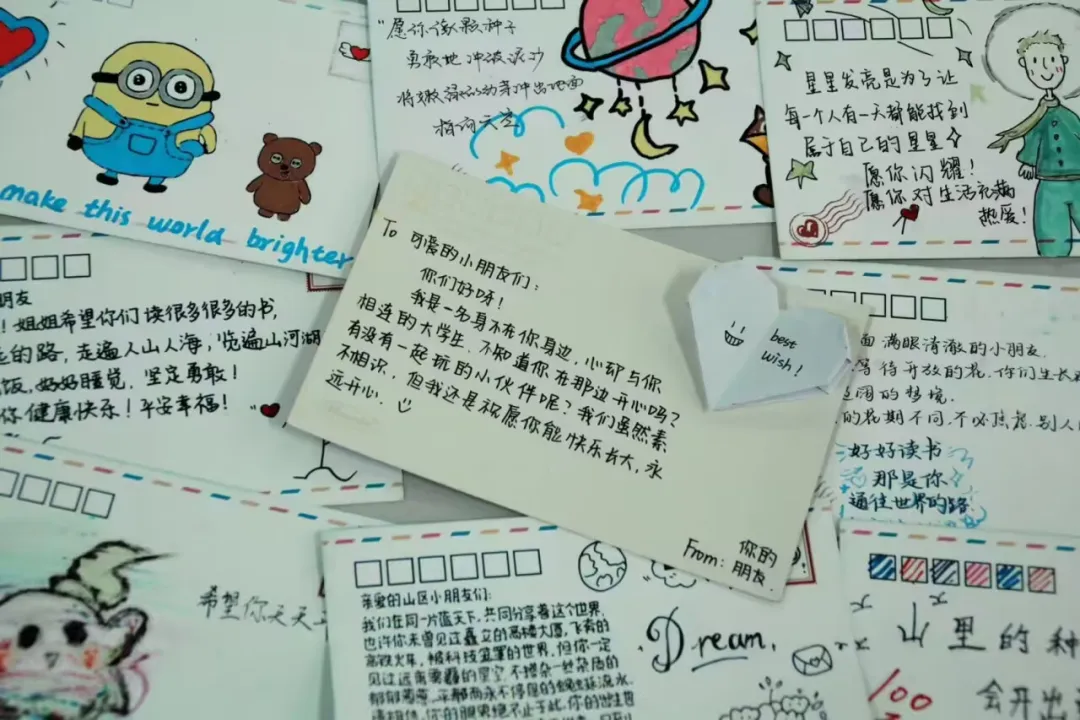 make this world brighter
愿你像颗种子
勇敢地冲破泥沙
将嫩绿的幼芽冲出地面
指向天空
星星发亮是为了让
每一个人有一天都能找到
属于自己的星星
愿你闪耀！
愿你对生活充满
热爱！
To 可爱的小朋友们：
你们好呀！
我是一名身不在你身边，心却与你
相连的大学生，不知道你在那边开心吗？
有没有一起玩的小伙伴呢？我们虽然素
不相识，但我还是祝愿你能快乐长大，永
远开心。
From：你的
朋友
best
wish！
朋友
！姐姐希望你们读很多很多的书，
的路，走遍人山人海，览遍山河湖
饭，好好睡觉，坚定勇敢！
你健康快乐！平安幸福！
面满眼清澈的小朋友，
等待开放的花，你们生长
阔的梦境，
的花期不同，不必焦虑，别人
好好读书
那是你
通往世界的路
希望你天天
亲爱的山区小朋友们：
我们在同一片蓝天下，共同分享着这个世界，
也许你未曾见过矗立的高楼大厦，飞奔的
高铁火车，被科技笼罩的世界，但你一定
见过远离雾霾的星空，不掺杂一丝杂质的
Dream.
山里的种
会开出
100